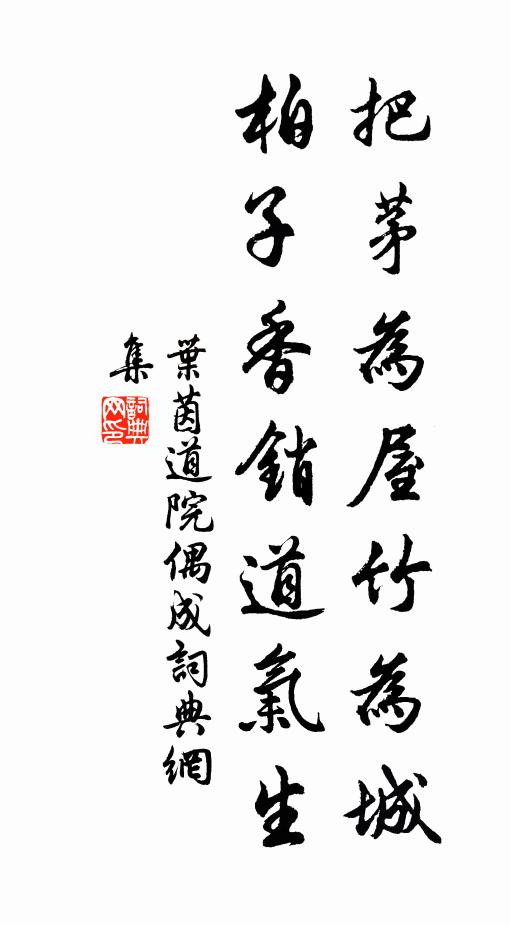 把茅為屋竹為城
柏子香銷道氣生
葉茵道院偶成詞典網
集
詞典
网印